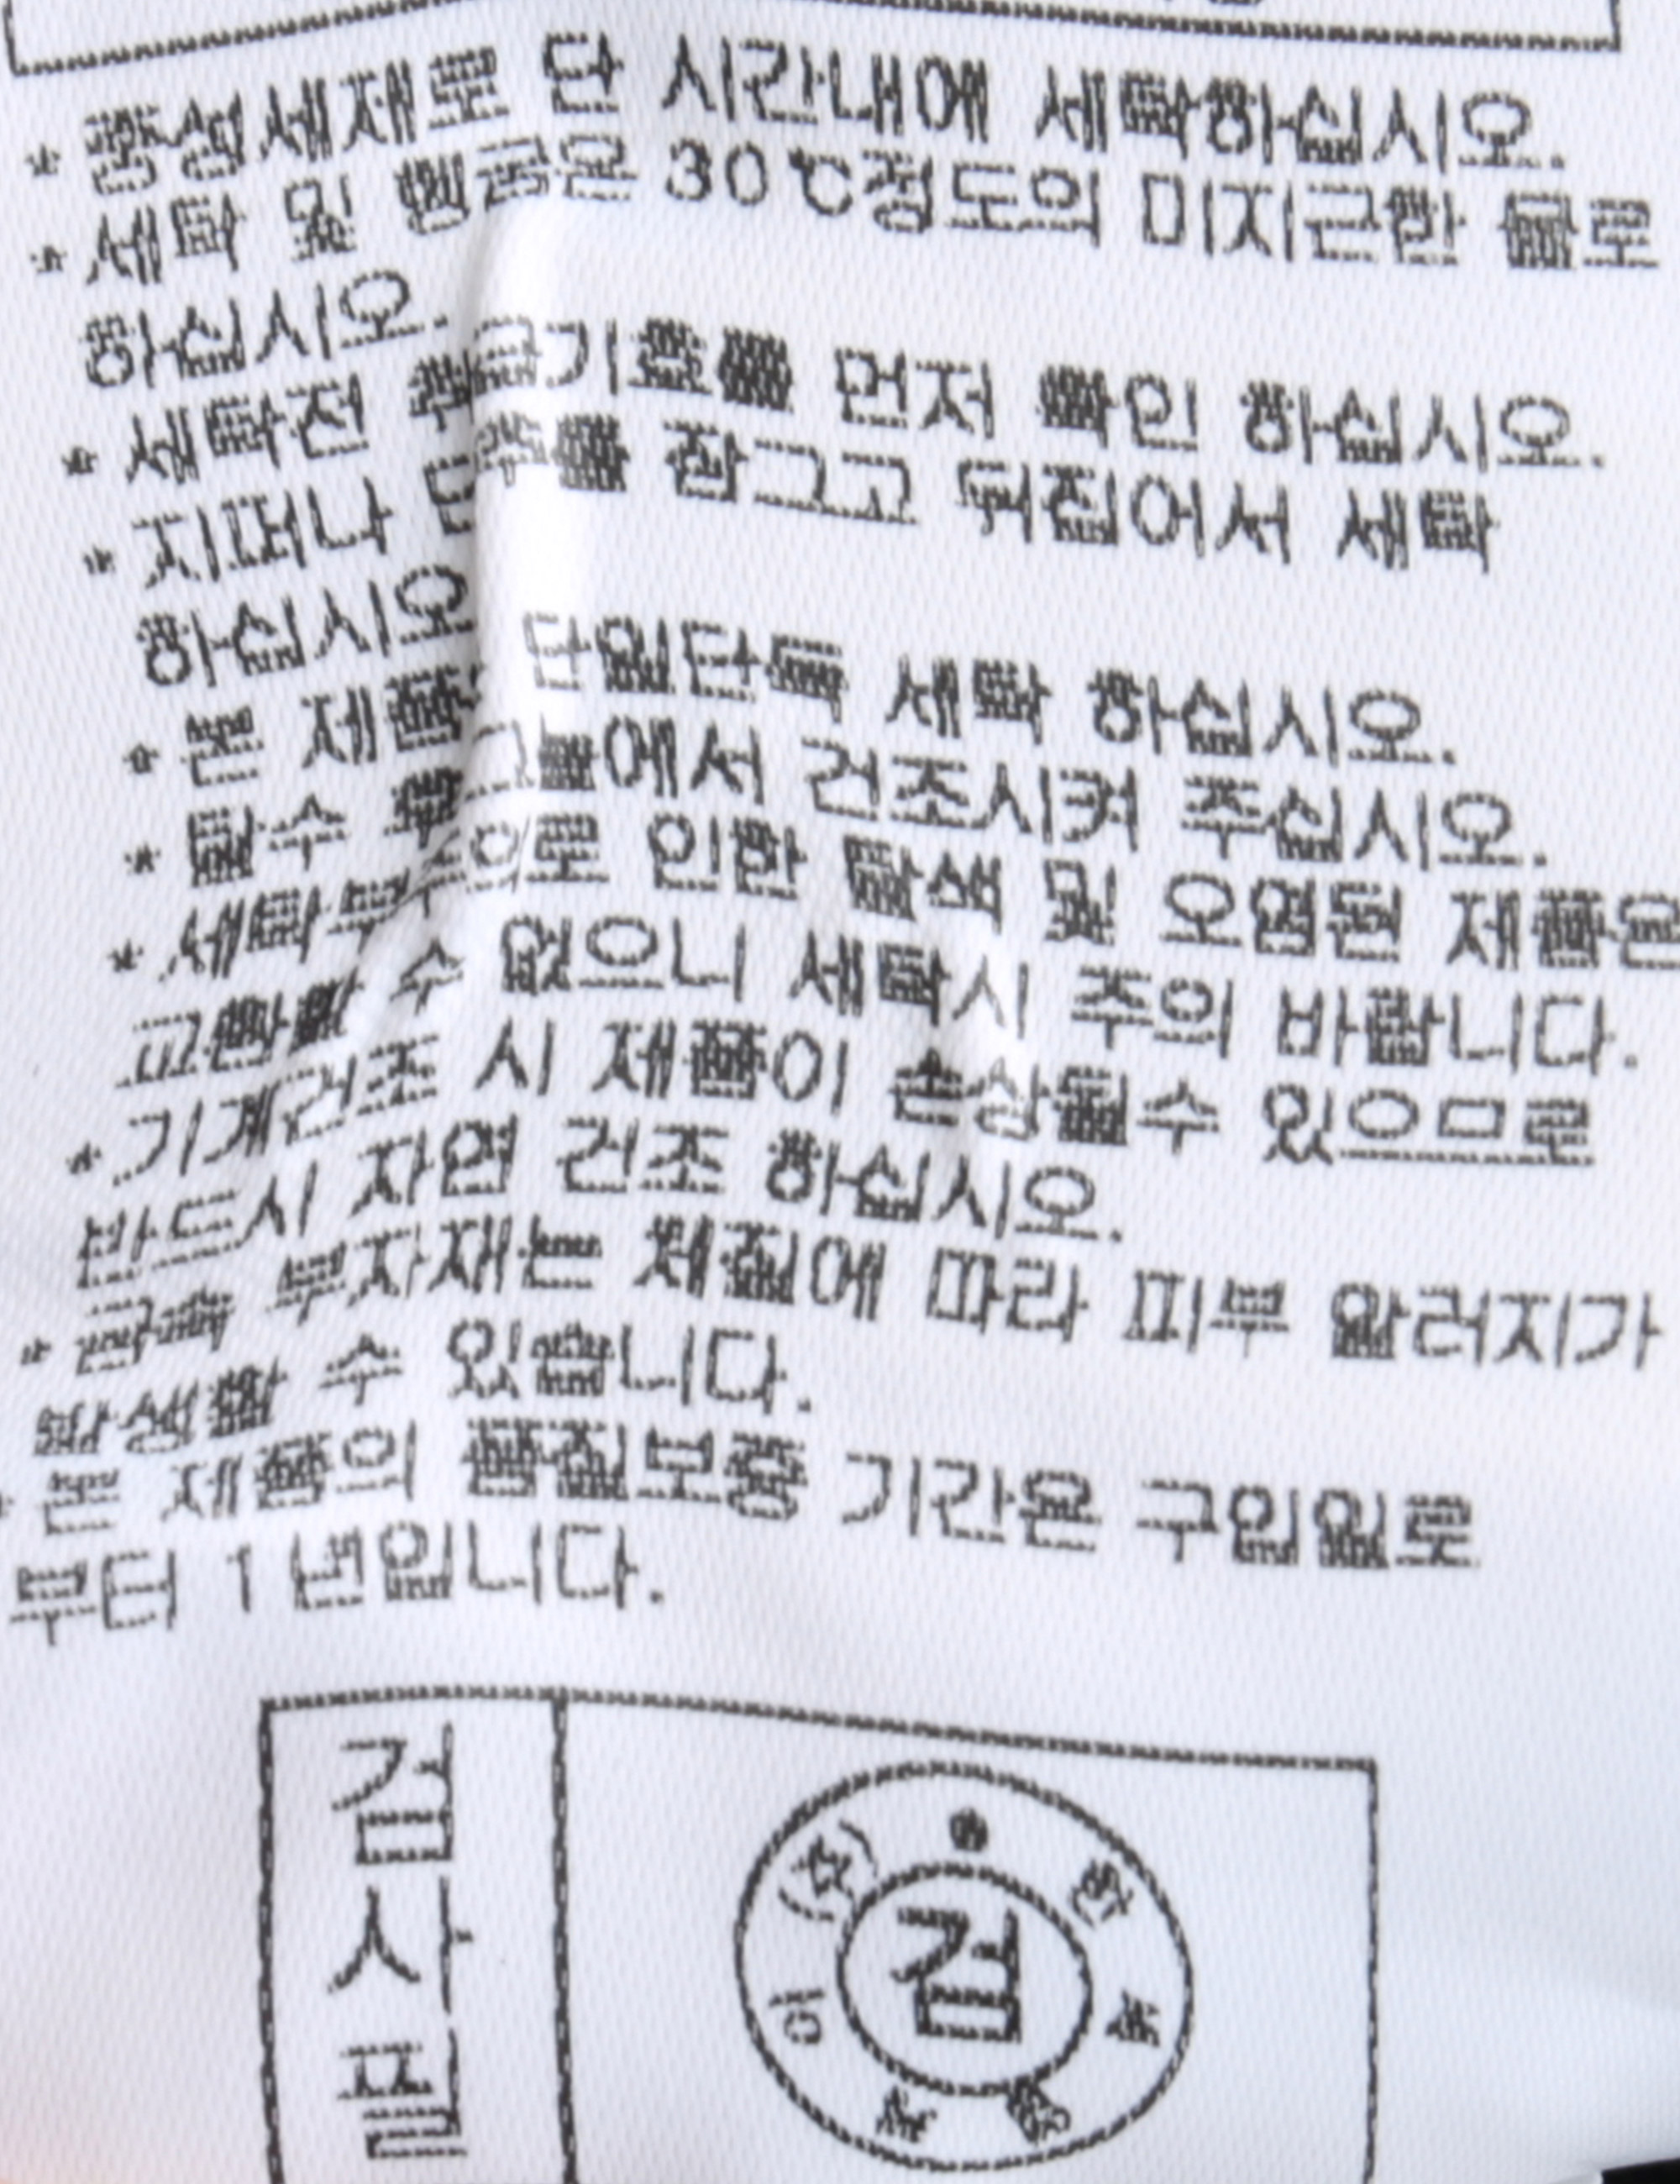 * 중성세제로 단 시간내에 세탁하십시오.
* 세탁 및 헹굼은 30℃정도의 미지근한 물로
하십시오.
* 세탁전 취급기호를 먼저 확인 하십시오.
* 지퍼나 단추를 잠그고 뒤집어서 세탁
하십시오
* 본 제품은 단일단독 세탁 하십시오.
* 탈수 후 그늘에서 건조시켜 주십시오.
* 세탁부주의로 인한 탈색 및 오염된 제품은
교환할 수 없으니 세탁시 주의 바랍니다.
* 기계건조 시 제품이 손상될수 있으므로
반드시 자연 건조 하십시오.
* 금속 부자재는 체질에 따라 피부 알러지가
발생할 수 있습니다.
* 본 제품의 품질보증 기간은 구입일로
부터 1년입니다.
검사필
(주)
검